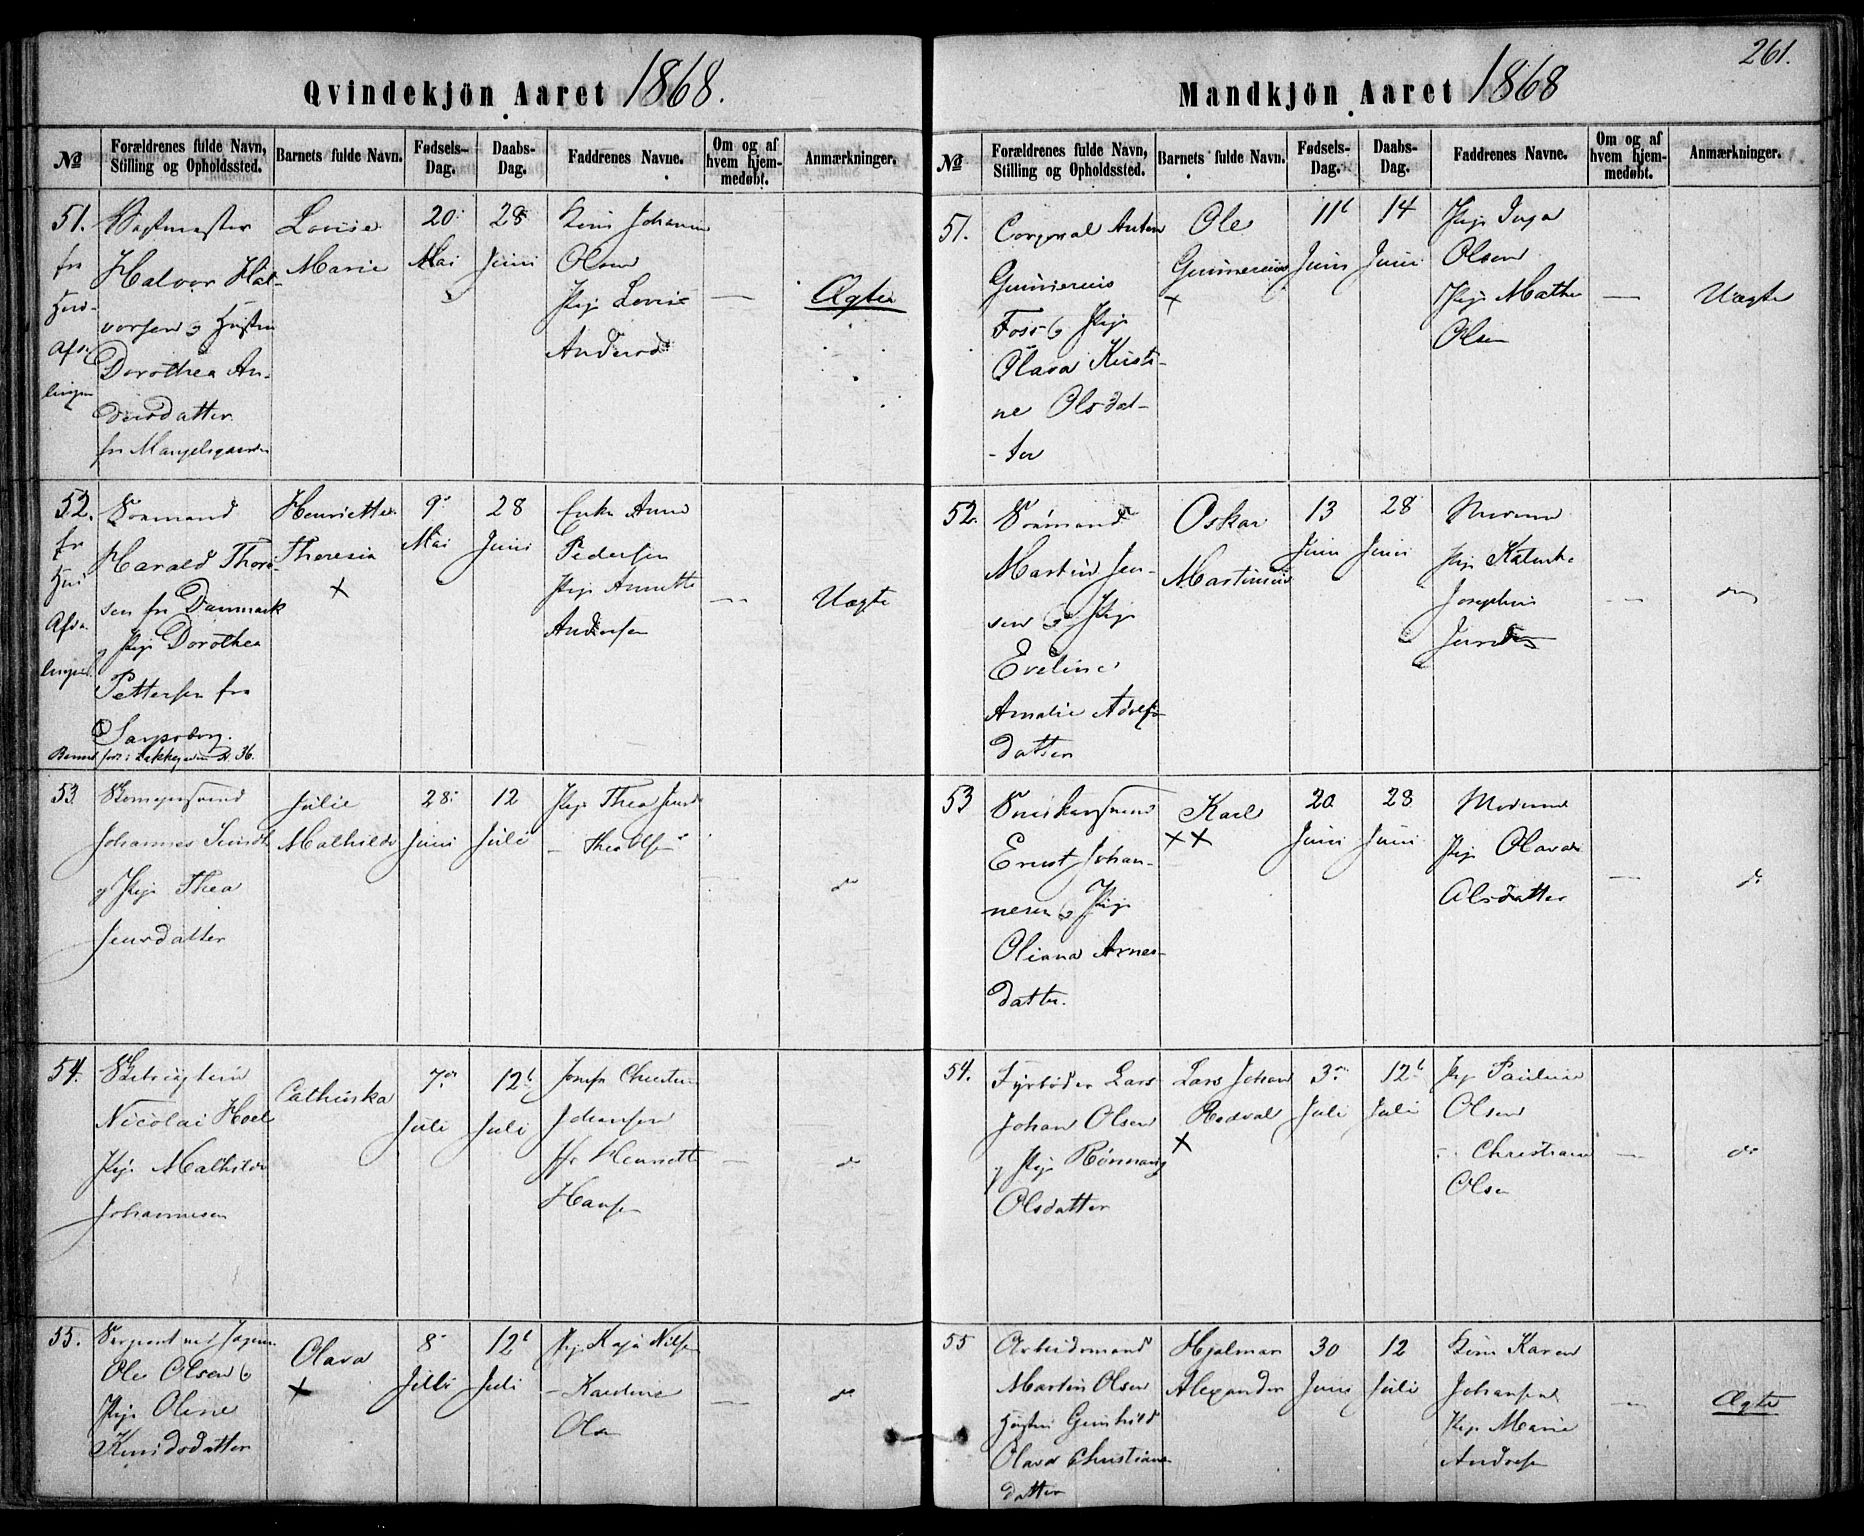 261.
Qvindekjön Aaret 1868.
№
Forældrenes fulde Navn, Stilling og Opholdssted.
Barnets fulde Navn.
Fødsels-Dag.
Daabs-Dag.
Faddrenes Navne.
Om og af hvem hjemmedøbt.
Anmærkninger.
51.
fr
Halvor Hal-
vorsen og Hustru
Dorothea An-
dersdatter
Lovise
Marie
20
Mai
28
Juni
Johanne
Olsen
Pige Lovise
—
Ægte
52.
fr
Harald Thor-
sen fra Danmark
Pige Dorothea
Pettersen fra
Sarpsborg.
36.
Henriette
Theresia
×
9
Mai
28
Juni
Enke Anne
Pedersen
Pige Annette
Andersen
—
Uægte
53
Johannes
Pige Thea
Jensdatter
Julie
Mathilde
28
Juni
12
Juli
Pige Thea
Thea Olsen
do
54.
Nicolai Hoel
Pige Mathilde
Johannesen
Cathinka
7de
Juli
12t
Juli
Josefa Christine
Johansen
Henriette
Hansen
—
do
55.
Sergeant ved
Ole Olsen og
Pige Oline
Knudsdatter
Olava
×
8
Juli
12t
Juli
Pige Kaja Nilsen
Olsen
—
do
Mandkjön Aaret 1868
№
Forældrenes fulde Navn, Stilling og Opholdssted.
Barnets fulde Navn.
Fødsels-Dag.
Daabs-Dag.
Faddrenes Navne.
Om og af hvem hjemmedøbt.
Anmærkninger.
51.
Corporal Anton
Gunnerius
Foss og Pige
Olava Kristi-
ne Olsdat-
-ter
Ole
Gunnerius
×
11t
Juni
14
Juni
Pige Inga
Olsen
Pige Mathe
Olsen
—
Uægte
52.
Sømand
Martin Jen-
sen og Pige
Eveline
Amalie Adolfs
datter
Oskar
Martinius
13
Juni
28
Juni
Moderen
Pige
Josephine
—
do
53
Ernst Johan-
nesen og Pige
Oliana Arnes-
datter.
Karl
××
20
Juni
28
Juni
Moderen
Pige Olava
Olsdatter
—
do
54.
Fyrbøder Lars
Johan Olsen
og Pige Rønnaug
Olsdatter
Lars Johan
×
3
Juli
12t
Juli
Pige Pauline
Olsen
Christiane
Olsen
—
do
55
Arbeidsmand
Martin Olsen
Hustru Gunhild
Olava Christians
datter
Hjalmar
Alexander
30
Juni
12
Juli
Karen
Johansen
Pige Marie
Andresen
—
Ægte